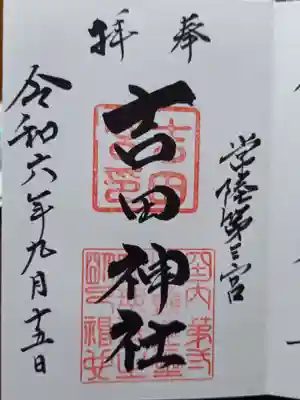 奉拝
常陸第三宮
吉田神社
令和六年九月十五日